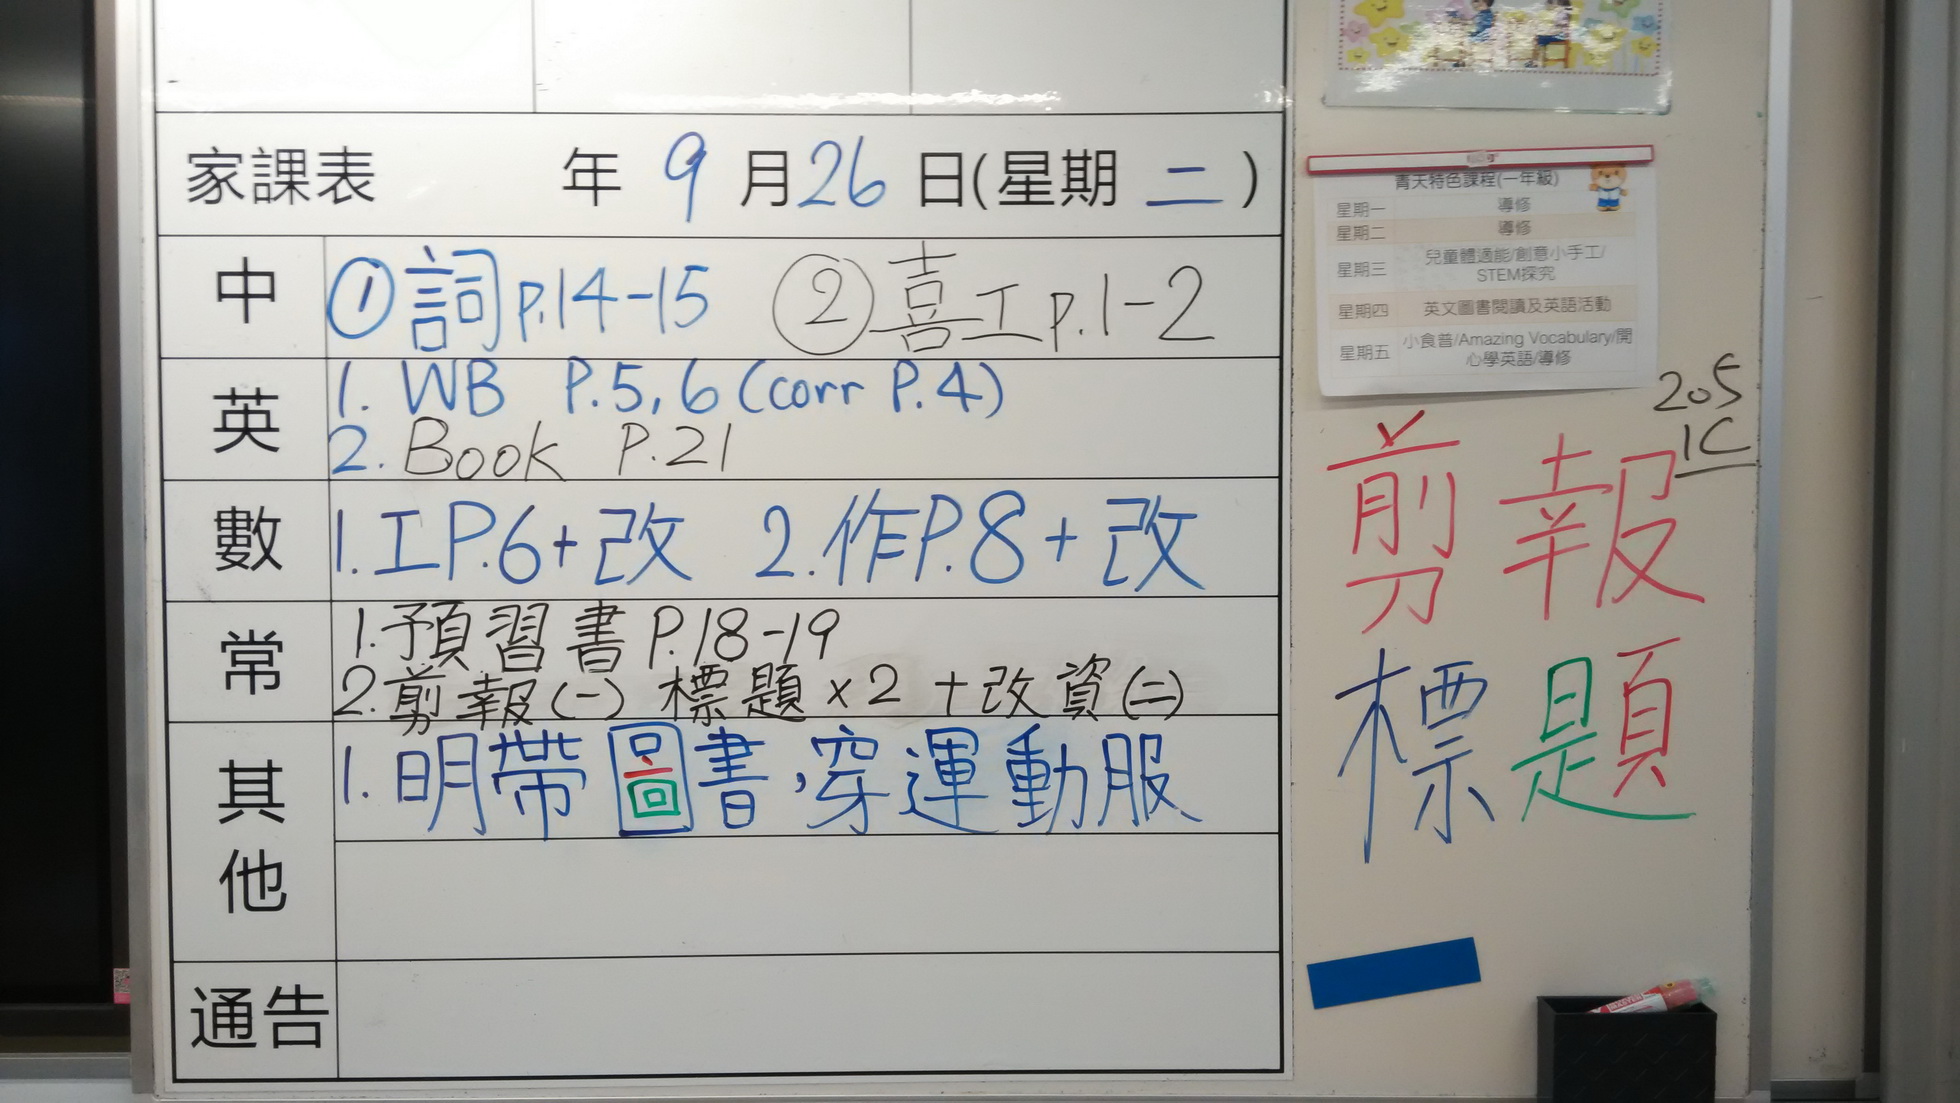 家課表 年 9 月 26 日(星期 二 )
中 ① 詞 p.14-15 ② 喜工 p.1-2
英 1. WB P.5,6 (corr P.4)
2. Book P.21
數 1. 工P.6+改 2. 作P.8+改
常 1. 預習書 P.18-19
2. 剪報(一) 標題×2 +改資(二)
其他 1. 明帶圖書,穿運動服
通告
青天特色課程(一年級)
星期一 導修
星期二 導修
星期三 兒童體適能/創意小手工/
STEM探究
星期四 英文圖書閱讀及英語活動
星期五 小食普/Amazing Vocabulary/開
心學英語/導修
205
1C
剪報
標題